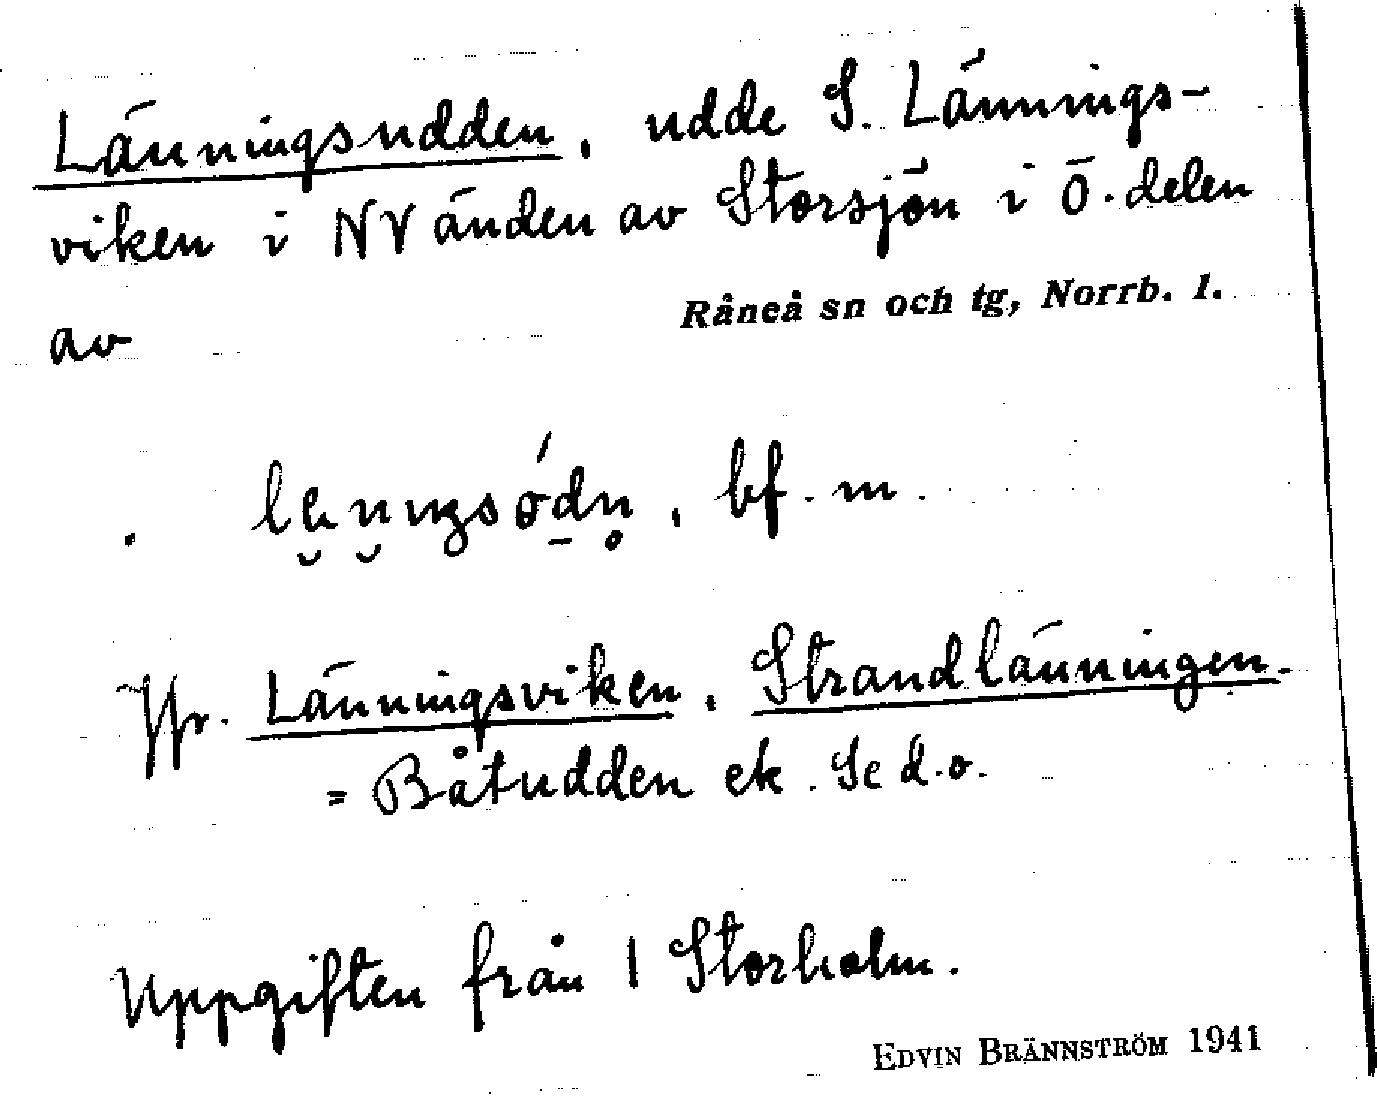 Länningsudden, udde S. Lännings-
viken i NV änden av Storsjön i Ö. delen
av Råneå sn och tg, Norrb. l.
bf. m.
Jfr. Länningsviken, Strandlänningen.
= Båtudden ek. Se d.o.
Uppgiften från 1 Storholm.
EDVIN BRÄNNSTRÖM 1941